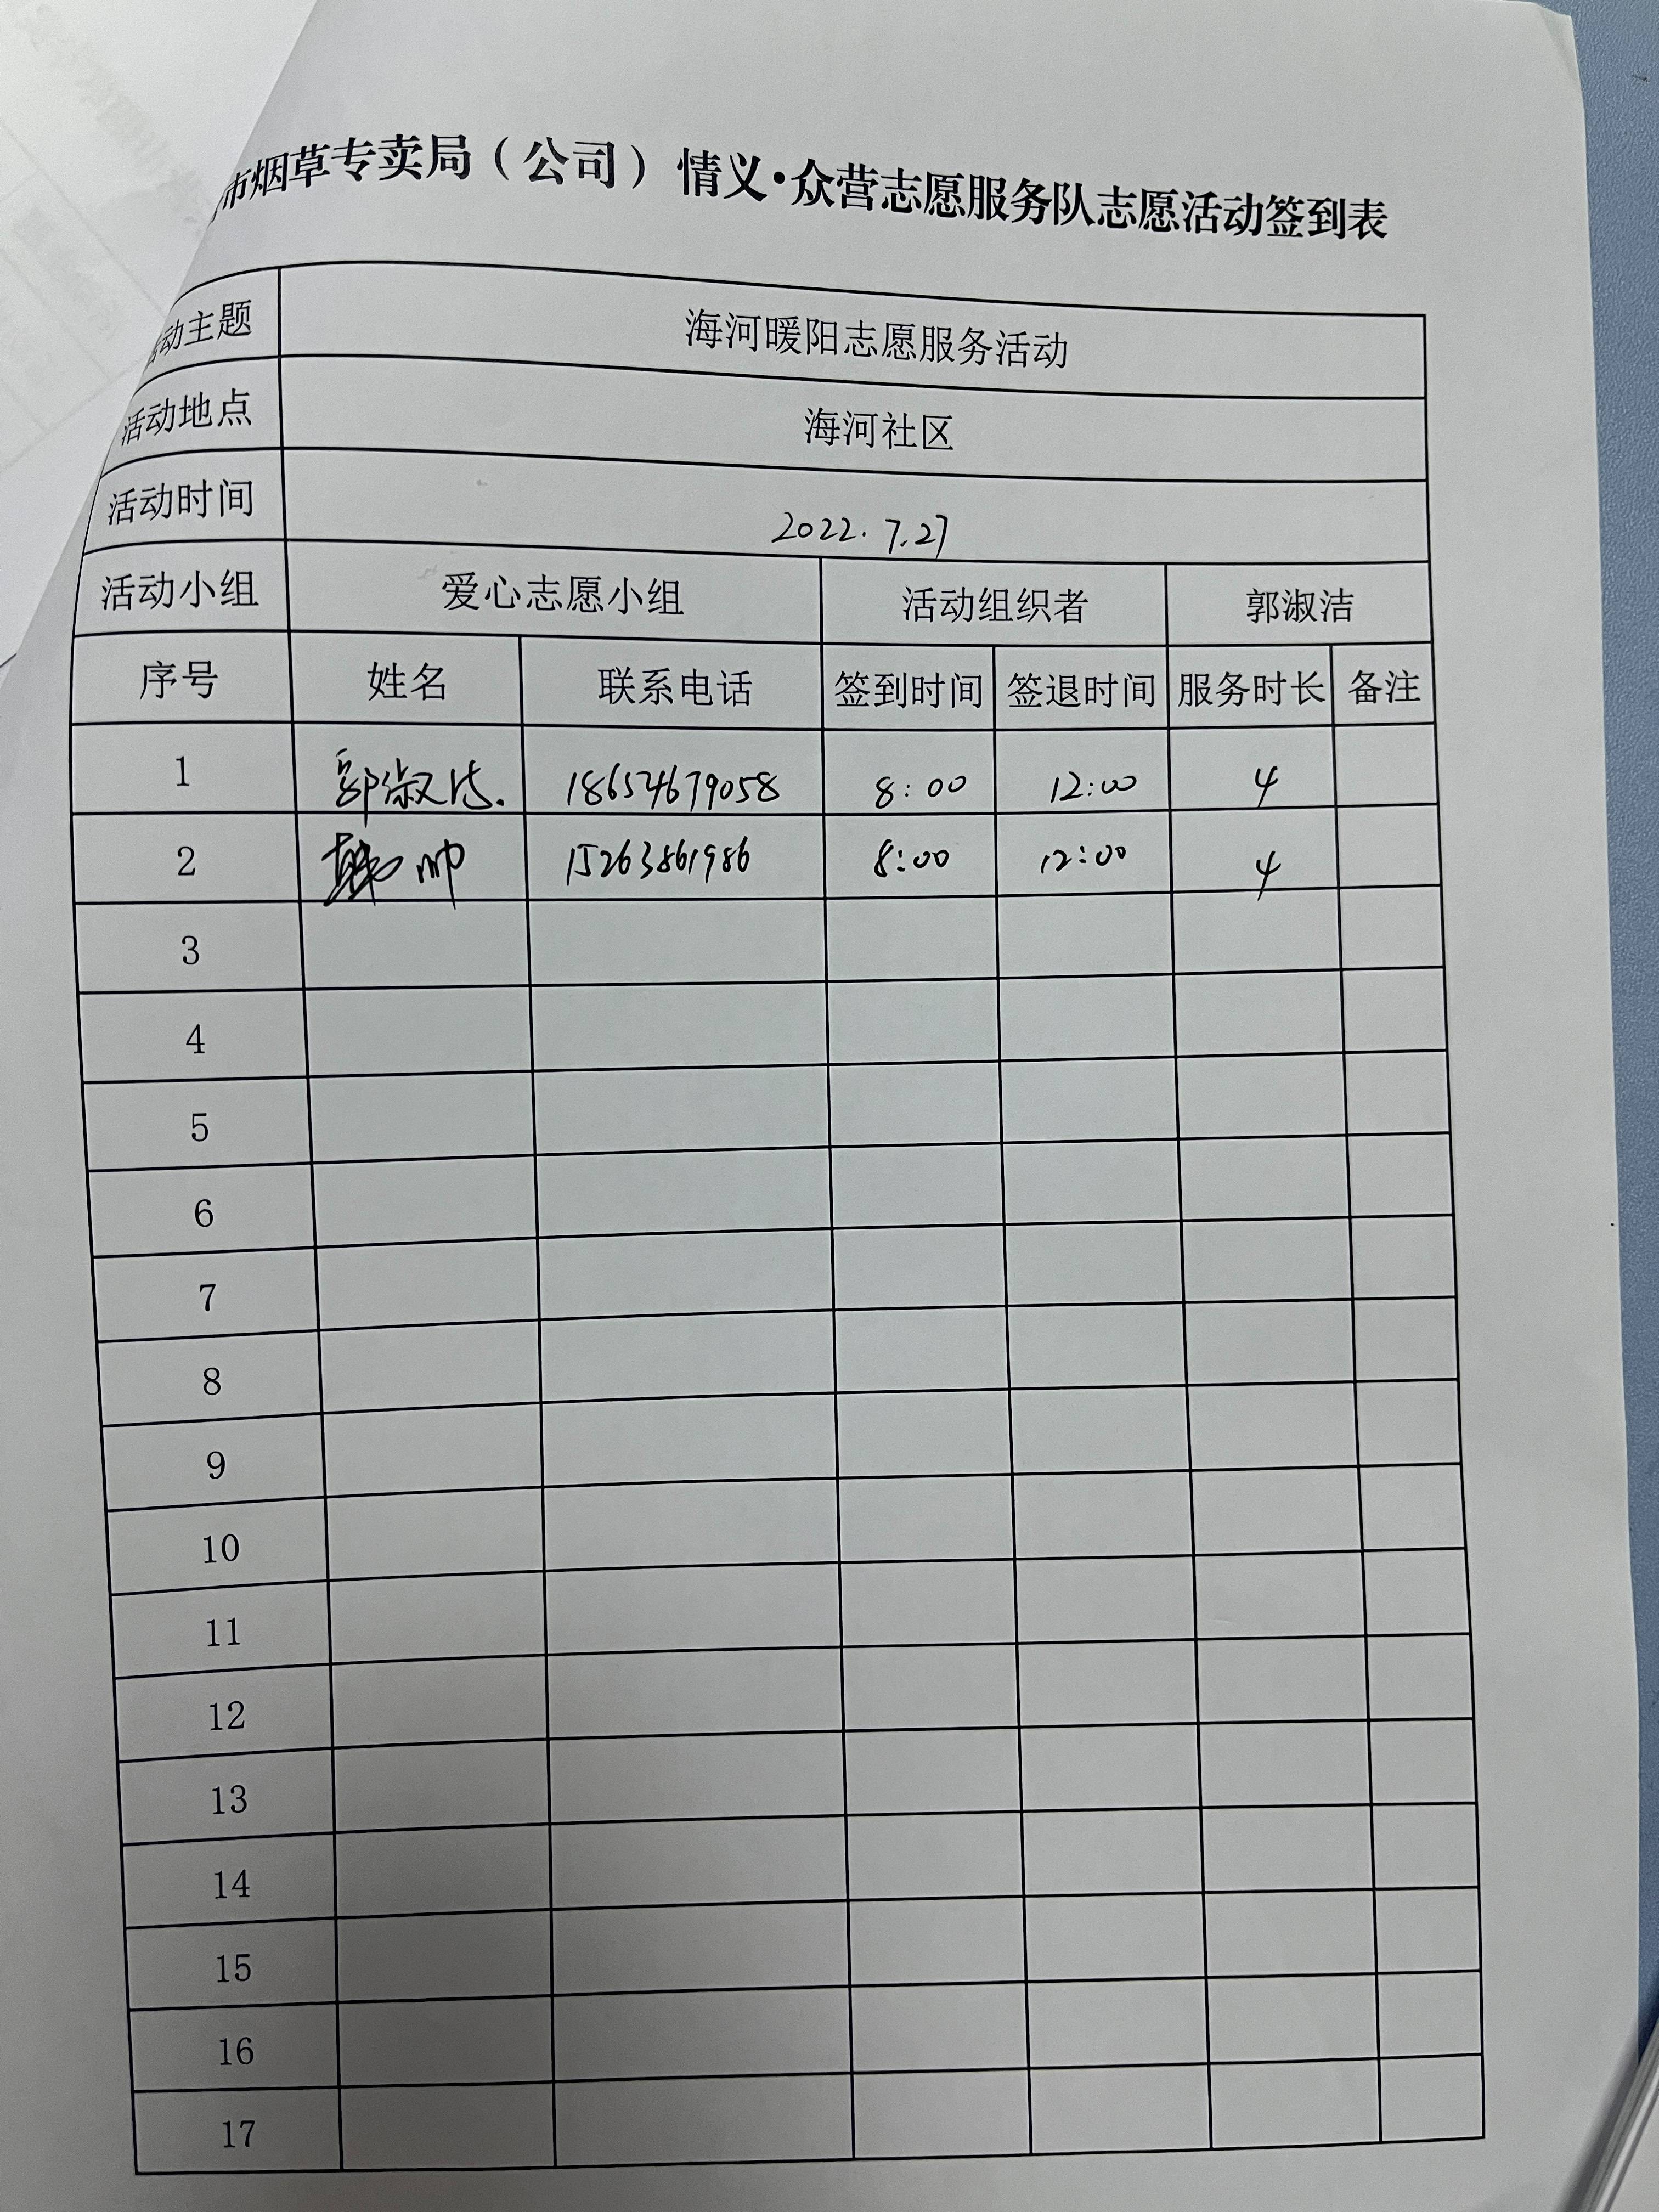 市烟草专卖局（公司）情义·众营志愿服务队志愿活动签到表
动主题 海河暖阳志愿服务活动
活动地点 海河社区
活动时间 2022.7.27
活动小组 爱心志愿小组 活动组织者 郭淑洁
序号 姓名 联系电话 签到时间 签退时间 服务时长 备注
1 郭淑洁. 18654679058 8:00 12:00 4
2 韩帅 15263861986 8:00 12:00 4
3
4
5
6
7
8
9
10
11
12
13
14
15
16
17